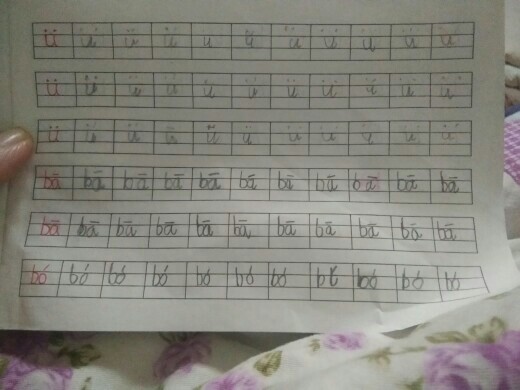 ü ü ü ü ü ü ü ü ü ü ü
ü ü ü ü ü ü ü ü ü ü ü
ü ü ü ü ü ü ü ü ü ü ü
bā bā bā bā bā bā bā bā bā bā bā
bā bā bā bā bā bā bā bā bā bā bā
bó bó bó bó bó bó bó bó bó bó